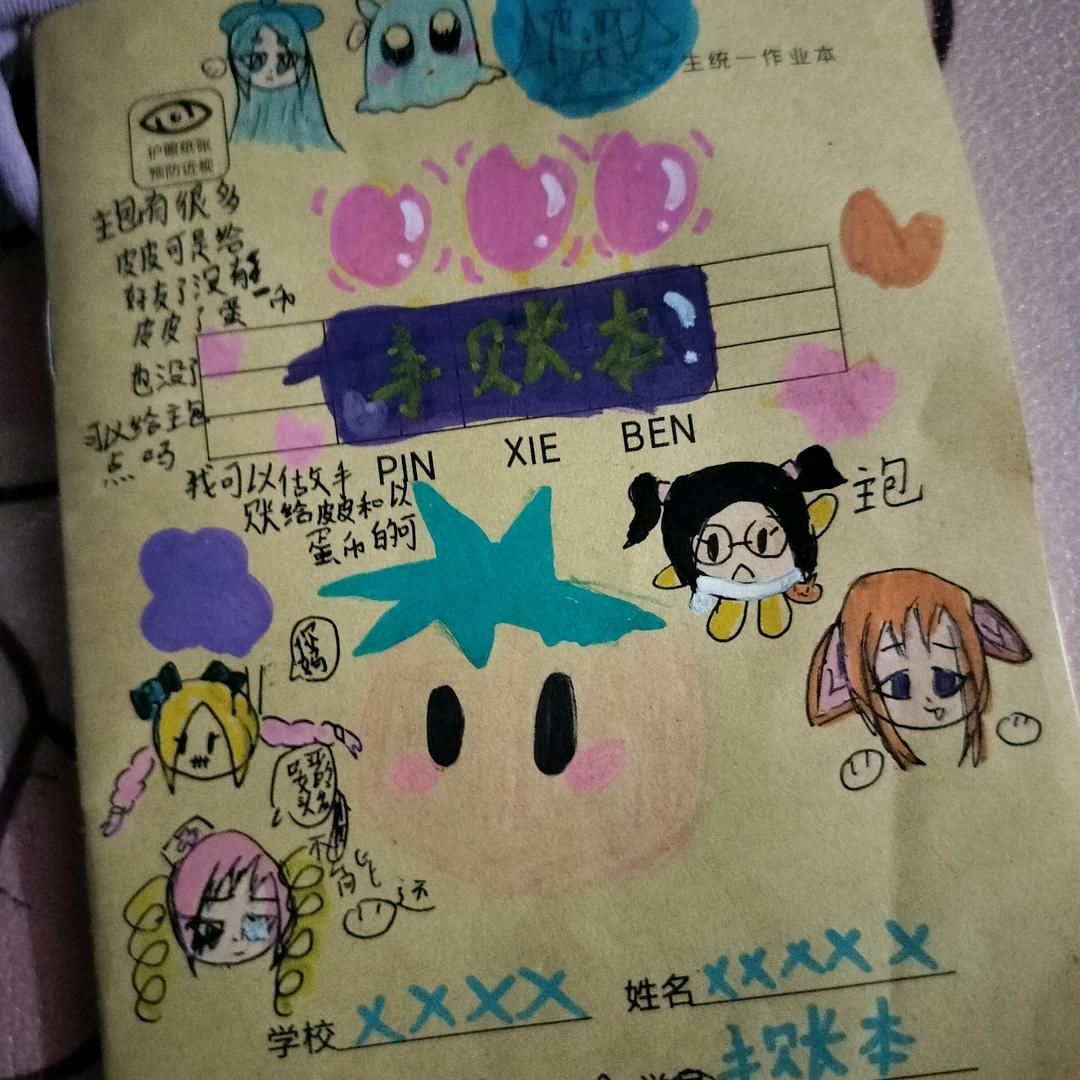 主统一作业本
护眼纸张
预防近视
主包有很多
皮皮可是给
好友了没有
皮皮了蛋币
也没了
可以给主包
点吗
手账本
PIN XIE BEN
我可以估文手
账给皮皮和以
蛋币的可
主包
学校 XXXX
姓名 XXXXX
手账本